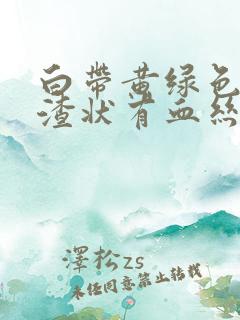 白带黄绿色
渣状有血絲
澤松zs
未经同意禁止转载